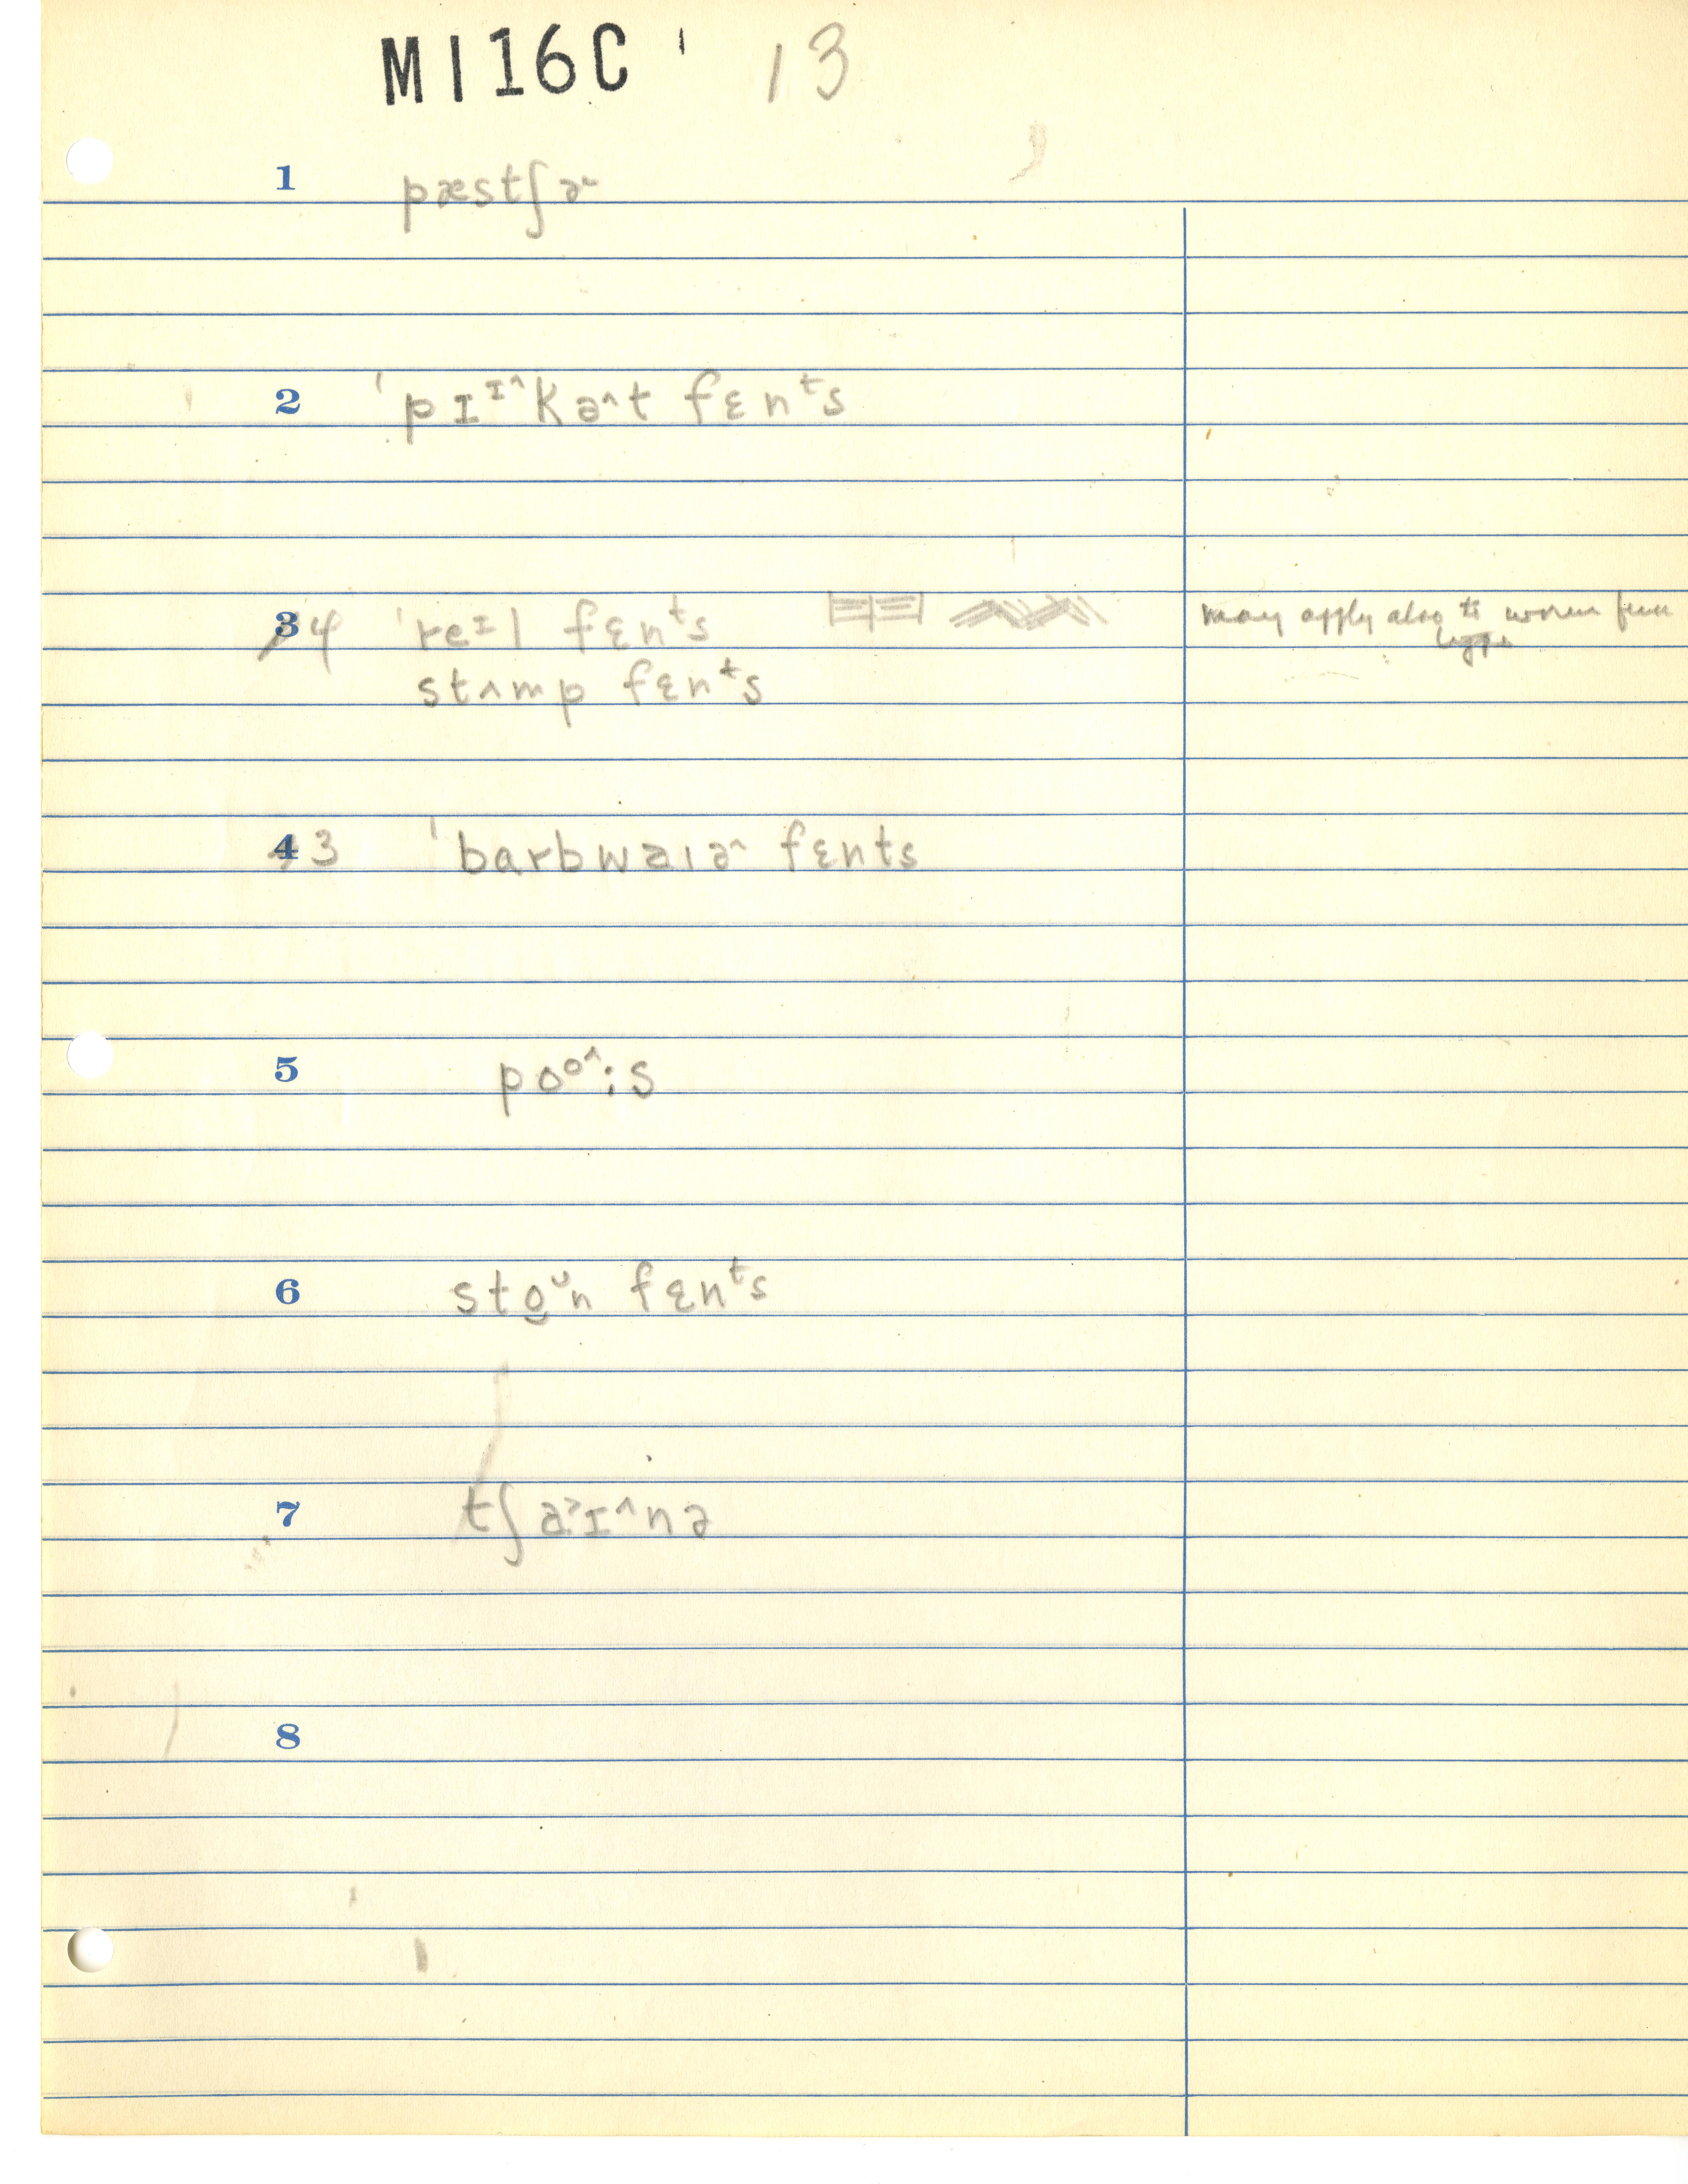 MI16C' 13
1 pæstʃɚ
2 'pɪᶦ^kə^t fɛnᵗs
3 4 'reᶦl fɛnᵗs may apply also to woven fence
type
stʌmp fɛnᵗs
4 3 'barbwaɪɚ fɛnts
5 poᵒ^:s
6 sto̬ᶷn fɛnᵗs
7 tʃa˃ɪ^nə
8